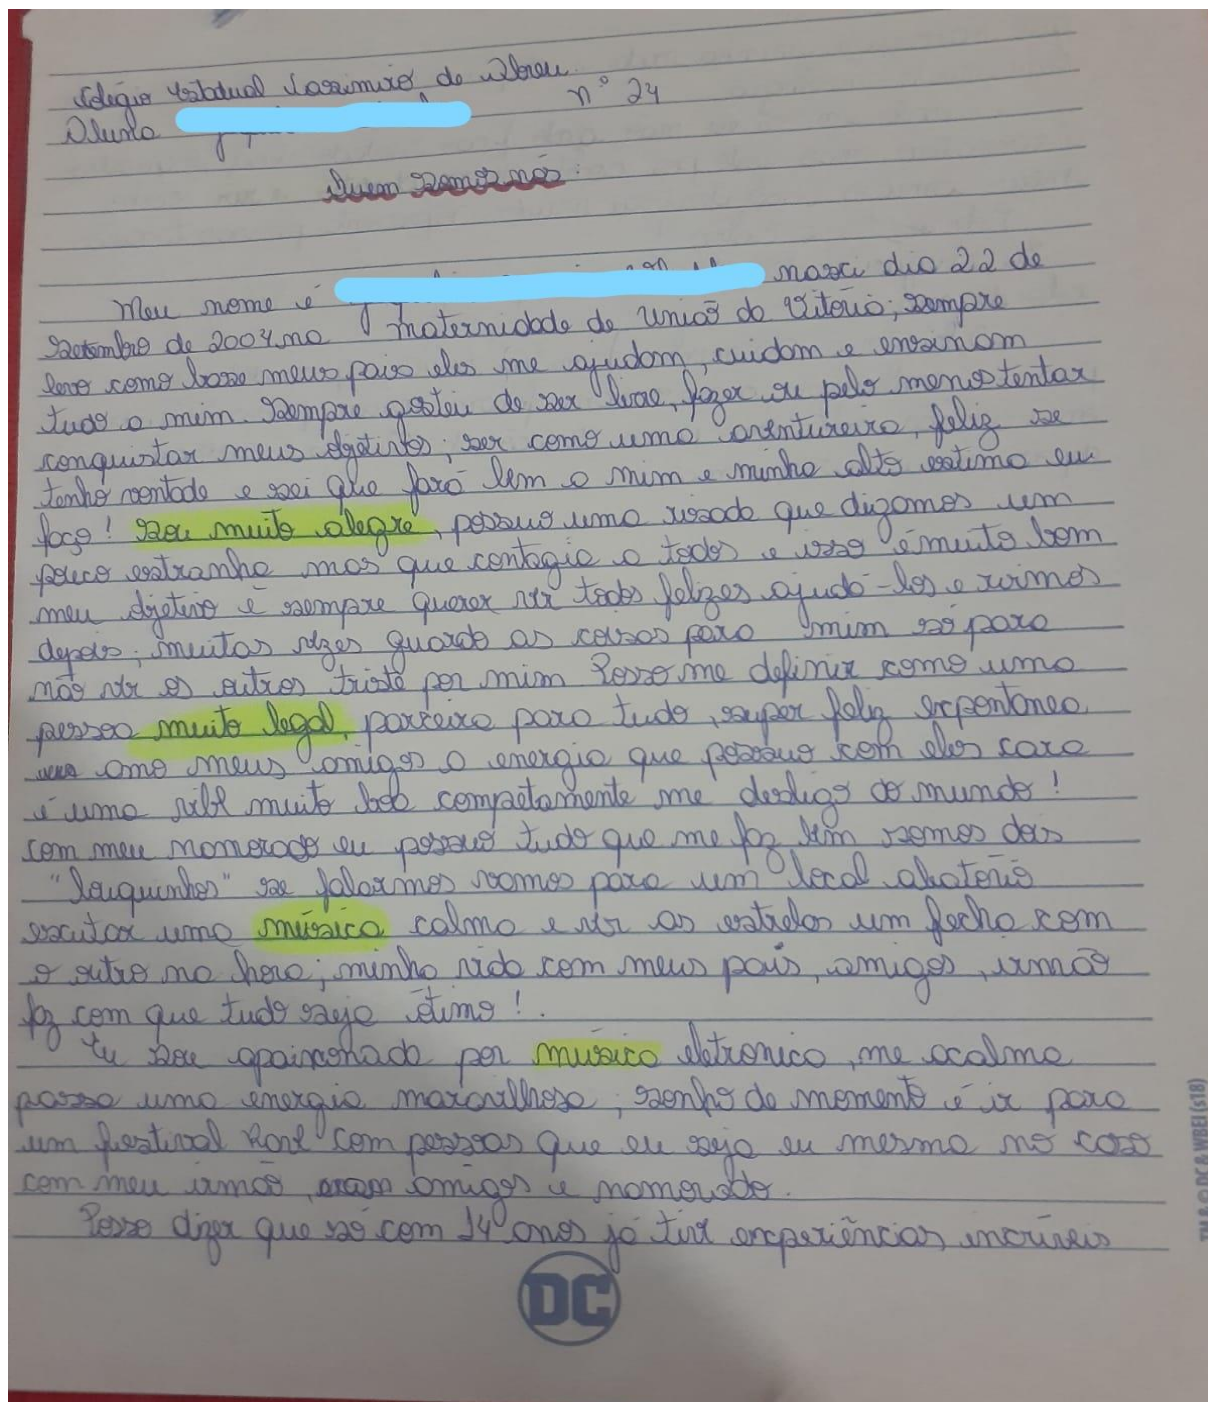 Colégio Estadual Casimiro de Abreu.
Aluna nº 24
Quem somos nós.
Meu nome é nasci dia 22 de
Setembro de 2004 na maternidade de União da Vitória; sempre
levo como base meus pais eles me ajudam, cuidam e ensinam
tudo a mim. Sempre gostei de ser livre, fazer ou pelo menos tentar
conquistar meus objetivos; ser como uma aventureira, feliz se
tenho vontade e sei que fará bem a mim e minha alto estima eu
faço! Sou muito alegre, possuo uma risada que digamos um
pouco estranha mas que contagia a todos e isso é muito bom
meu objetivo é sempre querer ver todos felizes ajudá-los e rirmos
depois; muitas vezes guardo as coisas para mim só para
não ver os outros triste por mim Posso me definir como uma
pessoa muito legal, parceira para tudo, super feliz expontanea
amo meus amigos a energia que possuo com eles cara
é uma vibe muito boa competamente me desligo do mundo!
com meu namorado eu possuo tudo que me faz bem somos dois
"louquinhos" se falarmos vamos para um local aleatório
escutar uma música calma e ver as estrelas um fecha com
o outro na hora; minha vida com meus pais, amigos, irmão
faz com que tudo seja ótimo!.
Eu sou apaixonada por música eletronica, me acalma
passa uma energia maravilhosa; sonho de momento é ir para
um festival Rave com pessoas que eu seja eu mesma no caso
com meu irmão, amigos e namorado.
Posso dizer que só com 14 anos já tive experiências incríveis
DC
TM & © DC & WBEI (s18)